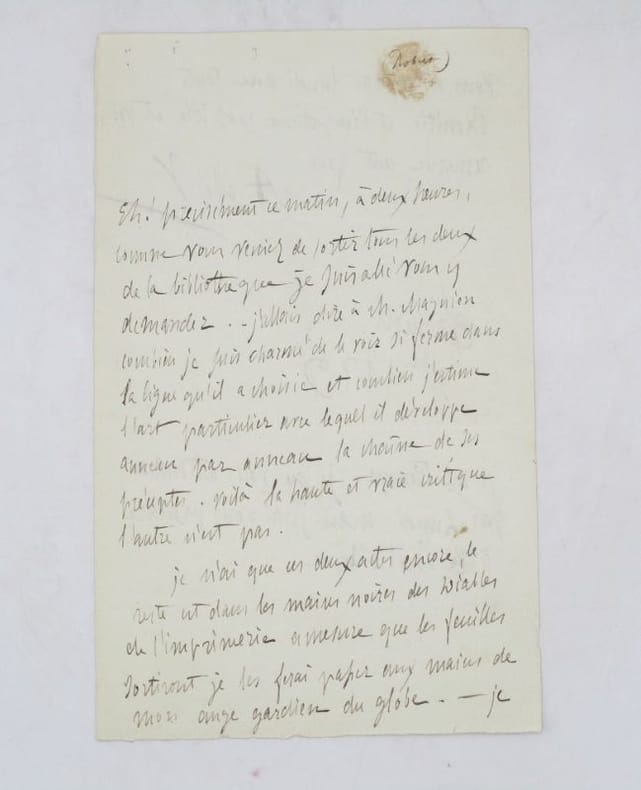 Eh! précisément ce matin, à deux heures,
comme vous veniez de sortir tous les deux
de la bibliothèque je suis allé vous y
demander .. j'allais dire à M. Magnien
combien je suis charmé de le voir si ferme dans
la ligne qu'il a choisie et combien j'estime
l'art particulier avec lequel il développe
anneau par anneau la chaîne de ses
préceptes. voilà la haute et vraie critique
l'autre n'est pas.
je n'ai que ces deux actes encore, le
reste est dans les mains noires des Diables
de l'imprimerie a mesure que les feuilles
sortiront je les ferai passer aux mains de
mon ange gardien du globe. — je